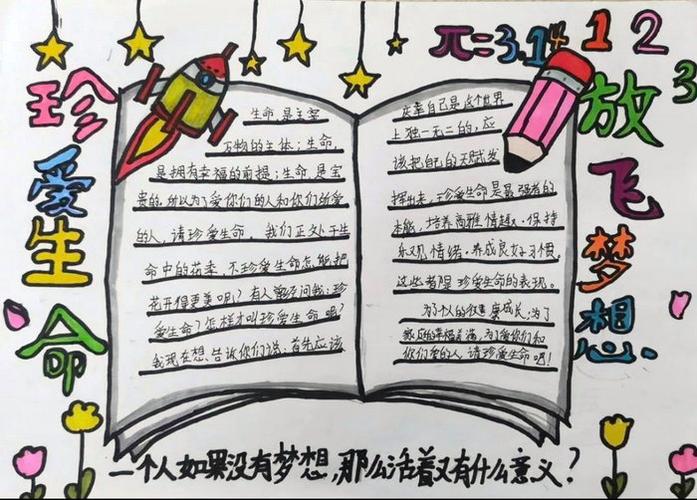 π=3.14
1 2 3
珍爱生命
放飞梦想
生命,是主宰
万物的主体;生命,
是拥有幸福的前提;生命,是宝
贵的,所以为了爱你们的人和你们所爱
的人,请珍爱生命。我们正处于生
命中的花季,不珍爱生命怎能把
花开得更美呢?有人曾经问我:珍
爱生命?怎样才叫珍爱生命呢?
我现在想告诉你们说:首先应该
自己是这个世界
上独一无二的,应
该把自己的天赋发
挥出来,珍爱生命是最强者的
本能,培养高雅情趣,保持
乐观情绪,养成良好习惯,
这些都是珍爱生命的表现。
为了个人的健康成长,为了
家庭的幸福美满,为了爱你们和
你们爱的人,请珍爱生命吧!
一个人如果没有梦想,那么活着又有什么意义?